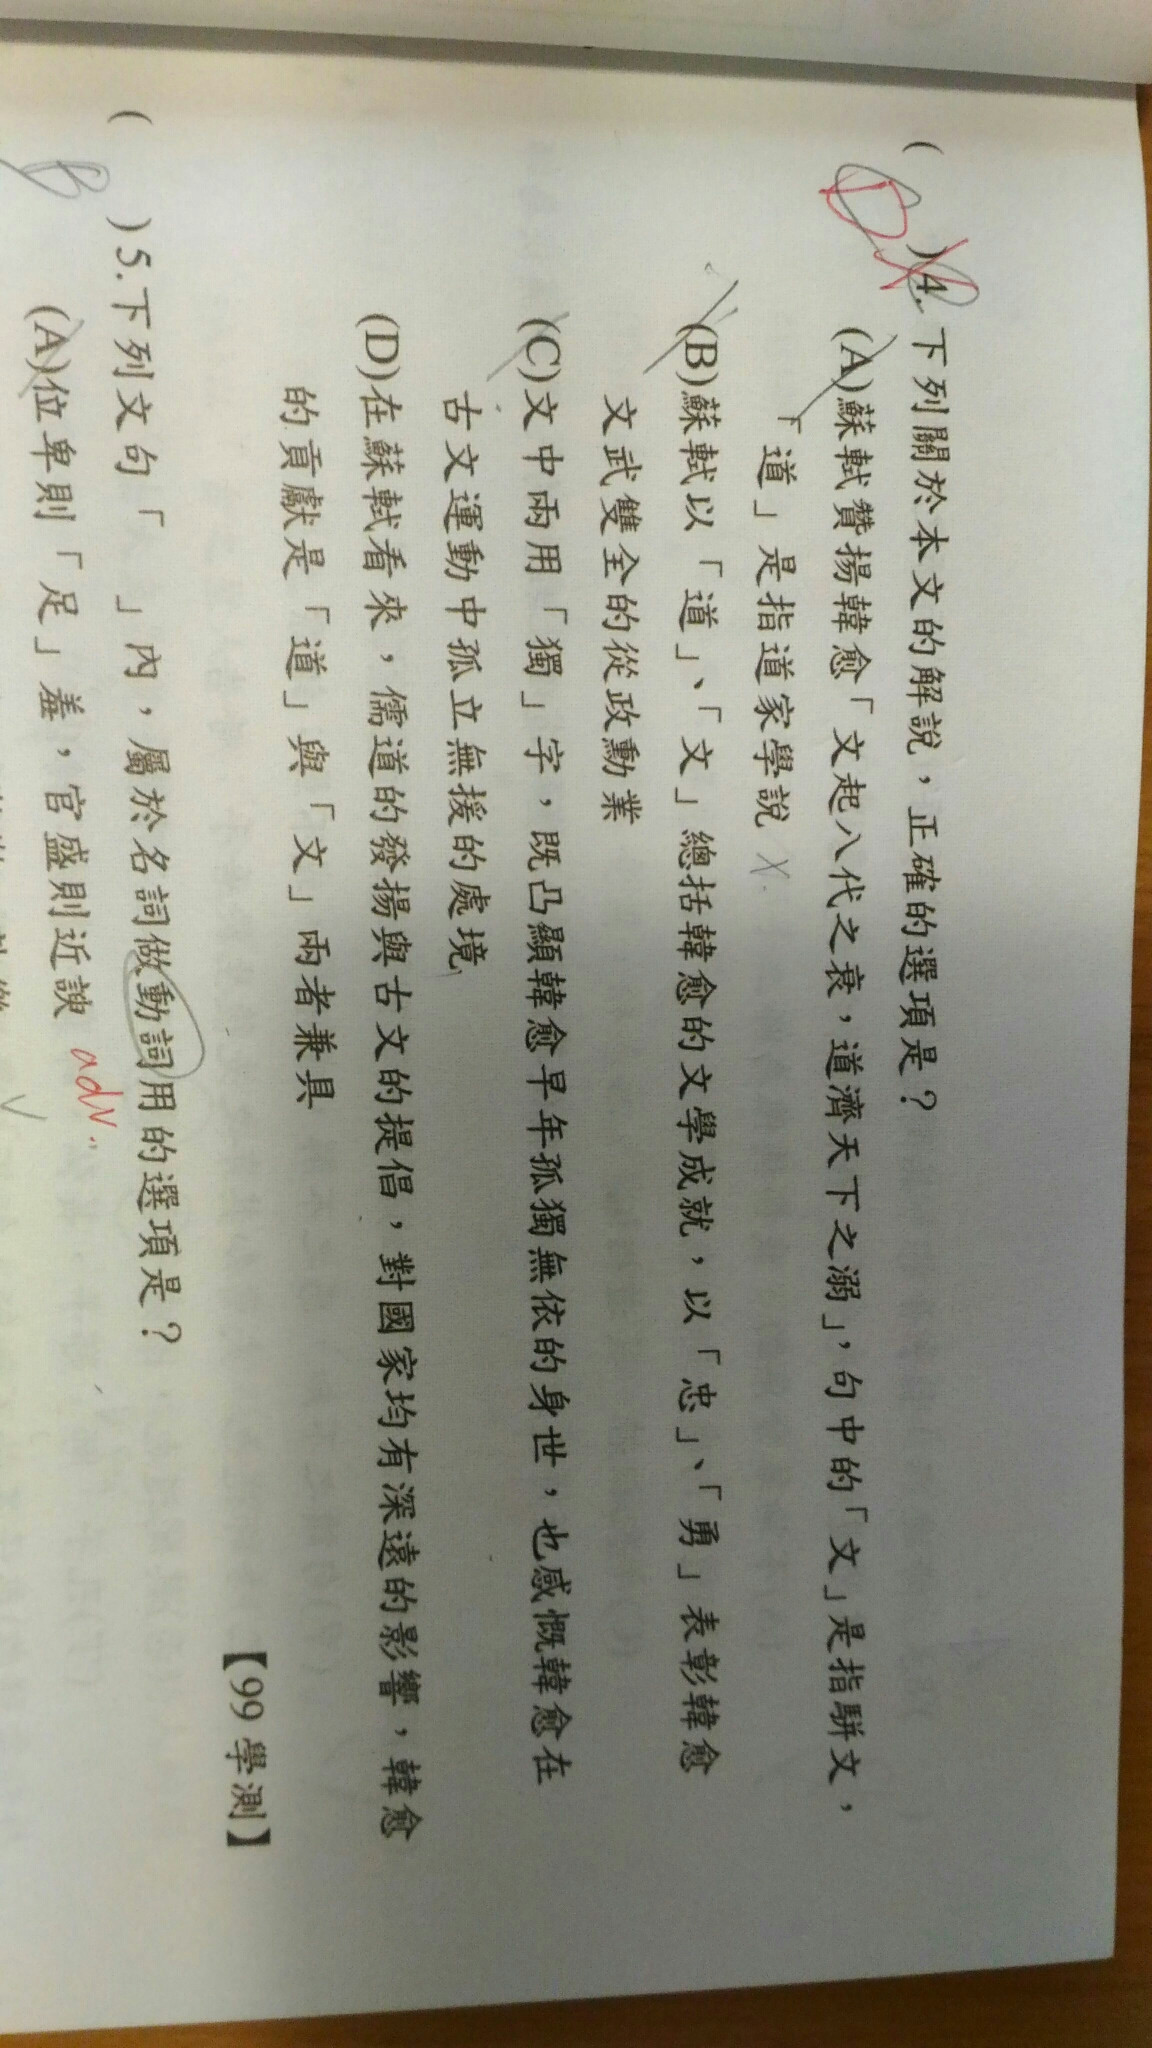 D
( )4.下列關於本文的解說，正確的選項是？
(A)蘇軾贊揚韓愈「文起八代之衰，道濟天下之溺」，句中的「文」是指駢文，
「道」是指道家學說 X
(B)蘇軾以「道」、「文」總括韓愈的文學成就，以「忠」、「勇」表彰韓愈
文武雙全的從政勳業
(C)文中兩用「獨」字，既凸顯韓愈早年孤獨無依的身世，也感慨韓愈在
古文運動中孤立無援的處境
(D)在蘇軾看來，儒道的發揚與古文的提倡，對國家均有深遠的影響，韓愈
的貢獻是「道」與「文」兩者兼具
【99學測】
B
( )5.下列文句「 」內，屬於名詞做動詞用的選項是？
(A)位卑則「足」羞，官盛則近諛 adv.